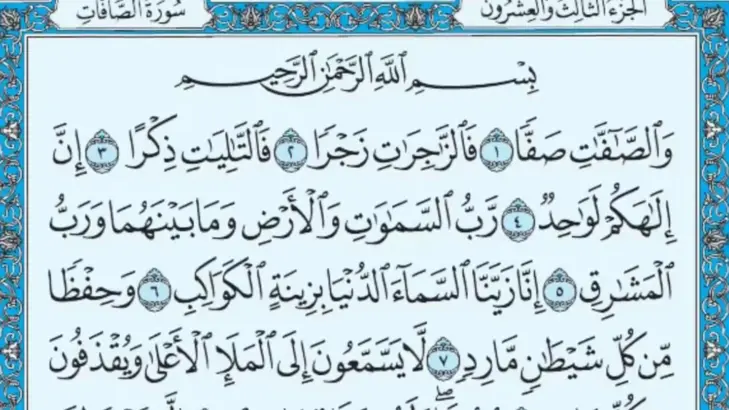 سُورَةُ الصَّافَّاتِ
الجُزءُ الثَّالِثُ وَالعِشْرُونَ
بِسْمِ ٱللَّهِ ٱلرَّحْمَٰنِ ٱلرَّحِيمِ
وَٱلصَّٰٓفَّٰتِ صَفّٗا ١ فَٱلزَّٰجِرَٰتِ زَجۡرٗا ٢ فَٱلتَّٰلِيَٰتِ ذِكۡرًا ٣ إِنَّ
إِلَٰهَكُمۡ لَوَٰحِدٞ ٤ رَّبُّ ٱلسَّمَٰوَٰتِ وَٱلۡأَرۡضِ وَمَا بَيۡنَهُمَا وَرَبُّ
ٱلۡمَشَٰرِقِ ٥ إِنَّا زَيَّنَّا ٱلسَّمَآءَ ٱلدُّنۡيَا بِزِينَةٍ ٱلۡكَوَاكِبِ ٦ وَحِفۡظٗا
مِّن كُلِّ شَيۡطَٰنٖ مَّارِدٖ ٧ لَّا يَسَّمَّعُونَ إِلَى ٱلۡمَلَإِ ٱلۡأَعۡلَىٰ وَيُقۡذَفُونَ